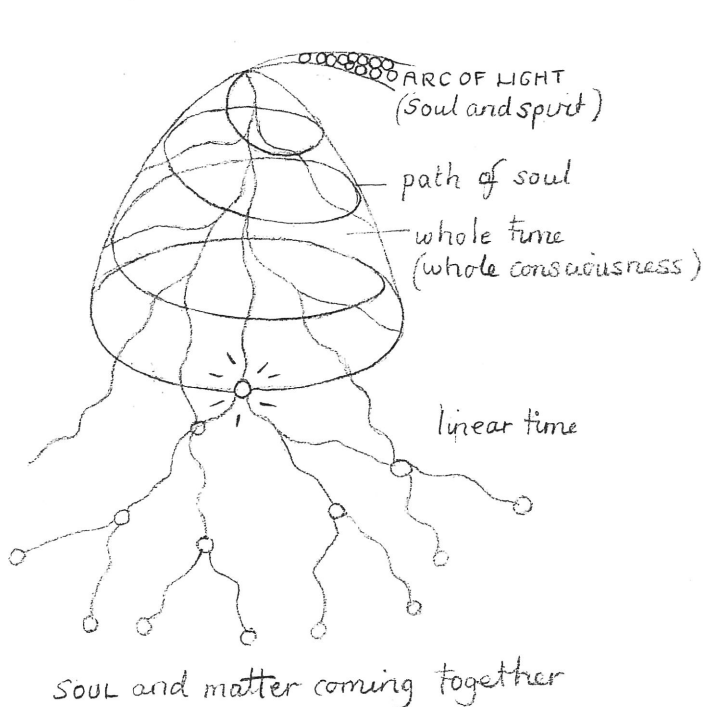 ARC OF LIGHT
(Soul and spirit)
path of soul
whole time
(whole consciousness)
linear time
SOUL and matter coming together